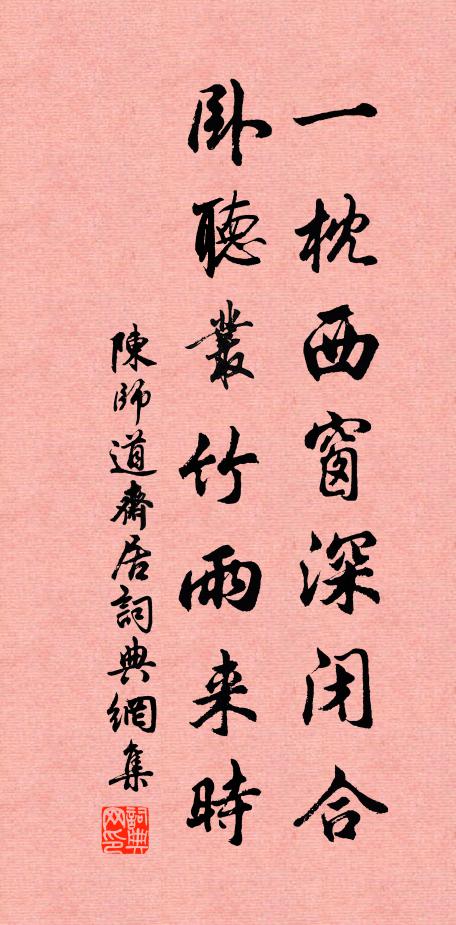 一枕西窗深闭合
卧聽叢竹雨来時
陳師道齋居詞典網集
詞典网印